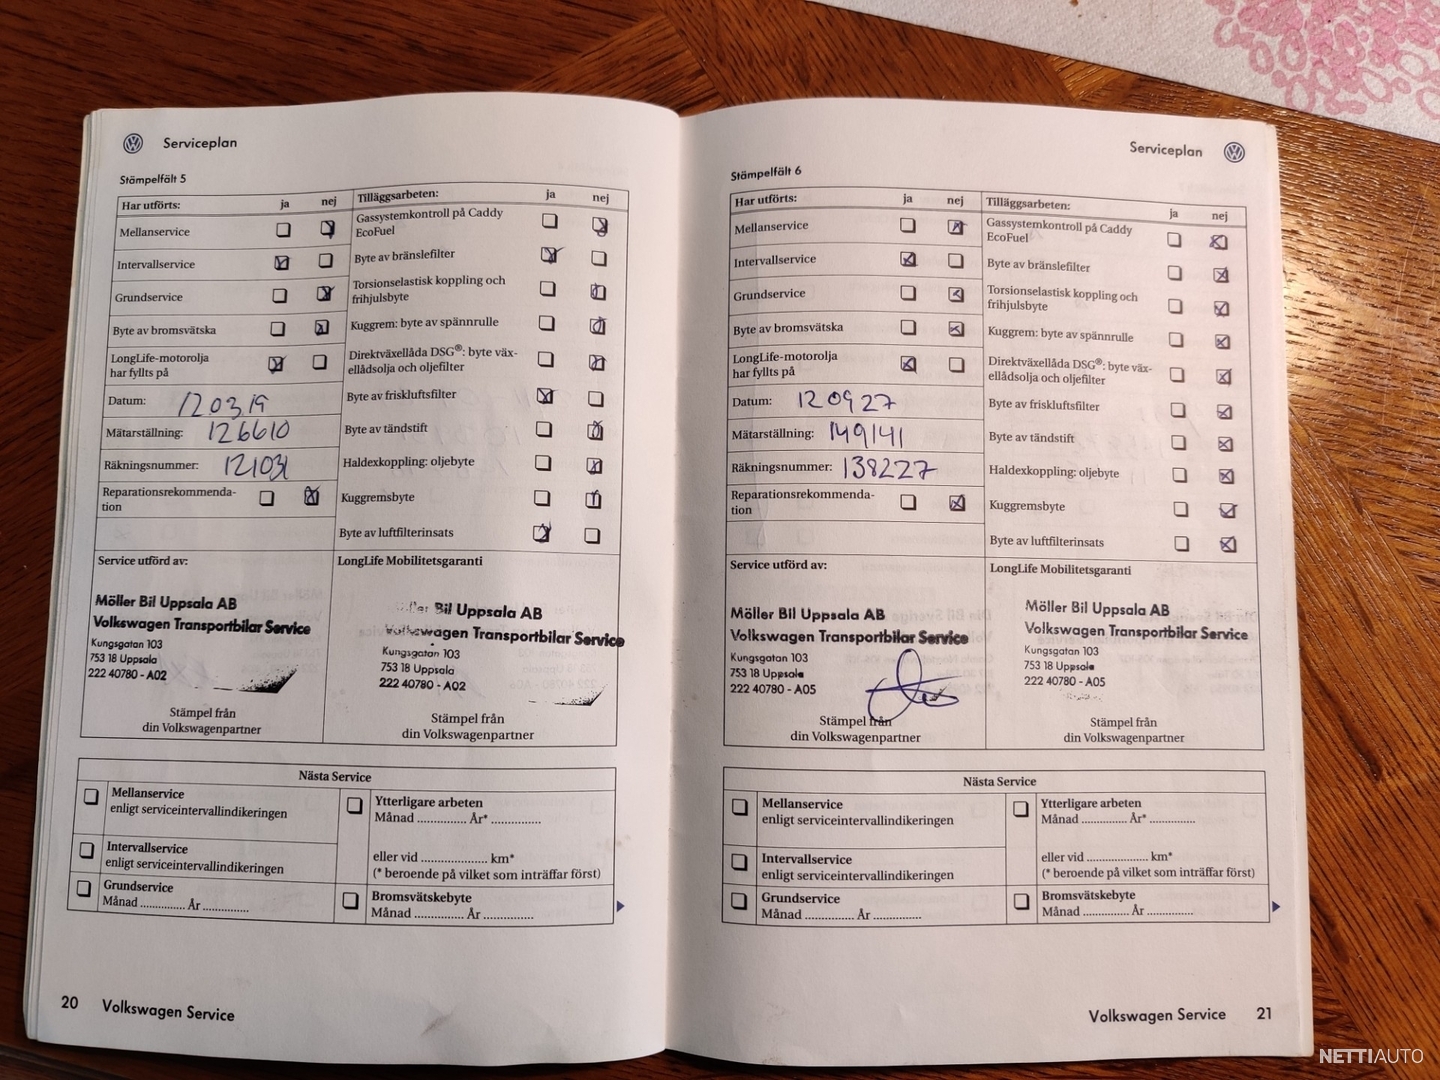 Serviceplan
Stämpelfält 5
Har utförts: ja nej
Mellanservice
Intervallservice
Grundservice
Byte av bromsvätska
LongLife-motorolja
har fyllts på
Datum: 120319
Mätarställning: 126610
Räkningsnummer: 121031
Reparationsrekommenda-
tion
Tilläggsarbeten: ja nej
Gassystemkontroll på Caddy
EcoFuel
Byte av bränslefilter
Torsionselastisk koppling och
frihjulsbyte
Kuggrem: byte av spännrulle
Direktväxellåda DSG®: byte väx-
ellådsolja och oljefilter
Byte av friskluftsfilter
Byte av tändstift
Haldexkoppling: oljebyte
Kuggremsbyte
Byte av luftfilterinsats
Service utförd av:
Möller Bil Uppsala AB
Volkswagen Transportbilar Service
Kungsgatan 103
753 18 Uppsala
222 40780 - A02
Stämpel från
din Volkswagenpartner
LongLife Mobilitetsgaranti
Bil Uppsala AB
Volkswagen Transportbilar Service
Kungsgatan 103
753 18 Uppsala
222 40780 - A02
Stämpel från
din Volkswagenpartner
Nästa Service
Mellanservice
enligt serviceintervallindikeringen
Intervallservice
enligt serviceintervallindikeringen
Grundservice
Månad ............... År ...............
Ytterligare arbeten
Månad ............... År* ...............
eller vid ..................... km*
(* beroende på vilket som inträffar först)
Bromsvätskebyte
Månad ............... År ...............
20 Volkswagen Service
Serviceplan
Stämpelfält 6
Har utförts: ja nej
Mellanservice
Intervallservice
Grundservice
Byte av bromsvätska
LongLife-motorolja
har fyllts på
Datum: 120927
Mätarställning: 149141
Räkningsnummer: 138227
Reparationsrekommenda-
tion
Tilläggsarbeten: ja nej
Gassystemkontroll på Caddy
EcoFuel
Byte av bränslefilter
Torsionselastisk koppling och
frihjulsbyte
Kuggrem: byte av spännrulle
Direktväxellåda DSG®: byte väx-
ellådsolja och oljefilter
Byte av friskluftsfilter
Byte av tändstift
Haldexkoppling: oljebyte
Kuggremsbyte
Byte av luftfilterinsats
Service utförd av:
Möller Bil Uppsala AB
Volkswagen Transportbilar Service
Kungsgatan 103
753 18 Uppsala
222 40780 - A05
Stämpel från
din Volkswagenpartner
LongLife Mobilitetsgaranti
Möller Bil Uppsala AB
Volkswagen Transportbilar Service
Kungsgatan 103
753 18 Uppsala
222 40780 - A05
Stämpel från
din Volkswagenpartner
Nästa Service
Mellanservice
enligt serviceintervallindikeringen
Intervallservice
enligt serviceintervallindikeringen
Grundservice
Månad ............... År ...............
Ytterligare arbeten
Månad ............... År* ...............
eller vid ..................... km*
(* beroende på vilket som inträffar först)
Bromsvätskebyte
Månad ............... År ...............
Volkswagen Service 21
NETTIAUTO